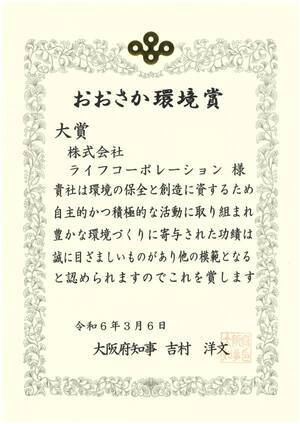 おおさか環境賞
大賞
株式会社
ライフコーポレーション 様
貴社は環境の保全と創造に資するため
自主的かつ積極的な活動に取り組まれ
豊かな環境づくりに寄与された功績は
誠に目ざましいものがあり他の模範となる
と認められますのでこれを賞します
令和6年3月6日
大阪府知事 吉村 洋文